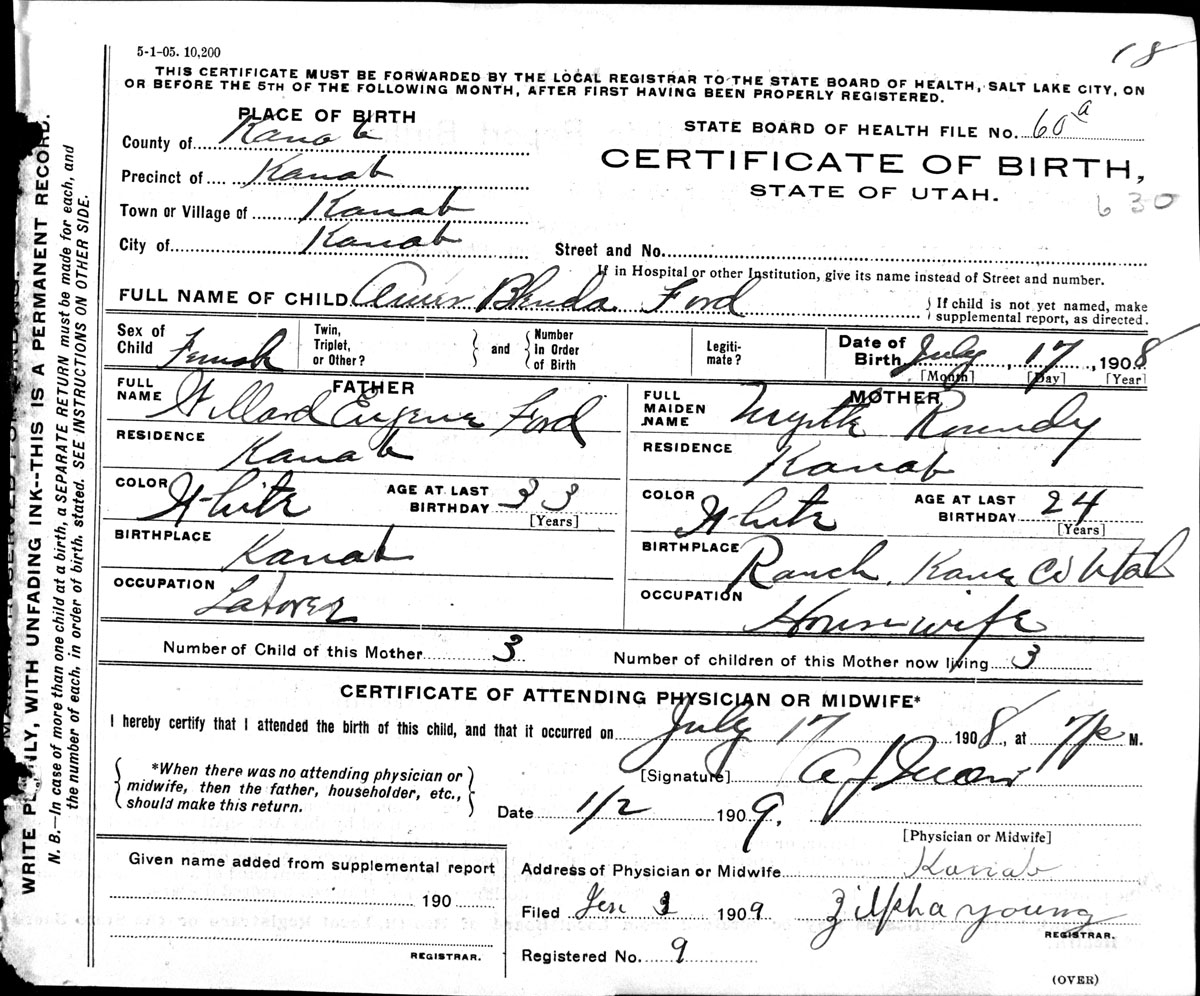 5-1-05. 10,200
18
THIS CERTIFICATE MUST BE FORWARDED BY THE LOCAL REGISTRAR TO THE STATE BOARD OF HEALTH, SALT LAKE CITY, ON
OR BEFORE THE 5TH OF THE FOLLOWING MONTH, AFTER FIRST HAVING BEEN PROPERLY REGISTERED.
PLACE OF BIRTH
County of Kanab
Precinct of Kanab
Town or Village of Kanab
City of Kanab
STATE BOARD OF HEALTH FILE No. 60a
CERTIFICATE OF BIRTH,
STATE OF UTAH.
630
Street and No.
If in Hospital or other Institution, give its name instead of Street and number.
FULL NAME OF CHILD Blenda Ford
If child is not yet named, make
supplemental report, as directed.
Sex of Child Female
Twin, Triplet, or Other?
and
Number In Order of Birth
Legitimate?
Date of Birth July 17, 1908
[Month] [Day] [Year]
FATHER
FULL NAME Willard Eugene Ford
RESIDENCE Kanab
COLOR White AGE AT LAST BIRTHDAY 33
[Years]
BIRTHPLACE Kanab
OCCUPATION Laborer
MOTHER
FULL MAIDEN NAME Myrtle Roundy
RESIDENCE Kanab
COLOR White AGE AT LAST BIRTHDAY 24
[Years]
BIRTHPLACE Ranch, Kane Co Utah
OCCUPATION Housewife
Number of Child of this Mother 3 Number of children of this Mother now living 3
CERTIFICATE OF ATTENDING PHYSICIAN OR MIDWIFE*
I hereby certify that I attended the birth of this child, and that it occurred on July 17 1908, at 7p M.
*When there was no attending physician or
midwife, then the father, householder, etc.,
should make this return.
[Signature]
Date 1/2 1909.
[Physician or Midwife]
Given name added from supplemental report
190
REGISTRAR.
Address of Physician or Midwife Kanab
Filed Jan 1909 Zilpha Young
REGISTRAR.
Registered No. 9
(OVER)
WRITE PLAINLY, WITH UNFADING INK--THIS IS A PERMANENT RECORD.
N. B.—In case of more than one child at a birth, a SEPARATE RETURN must be made for each, and
the number of each, in order of birth, stated. SEE INSTRUCTIONS ON OTHER SIDE.